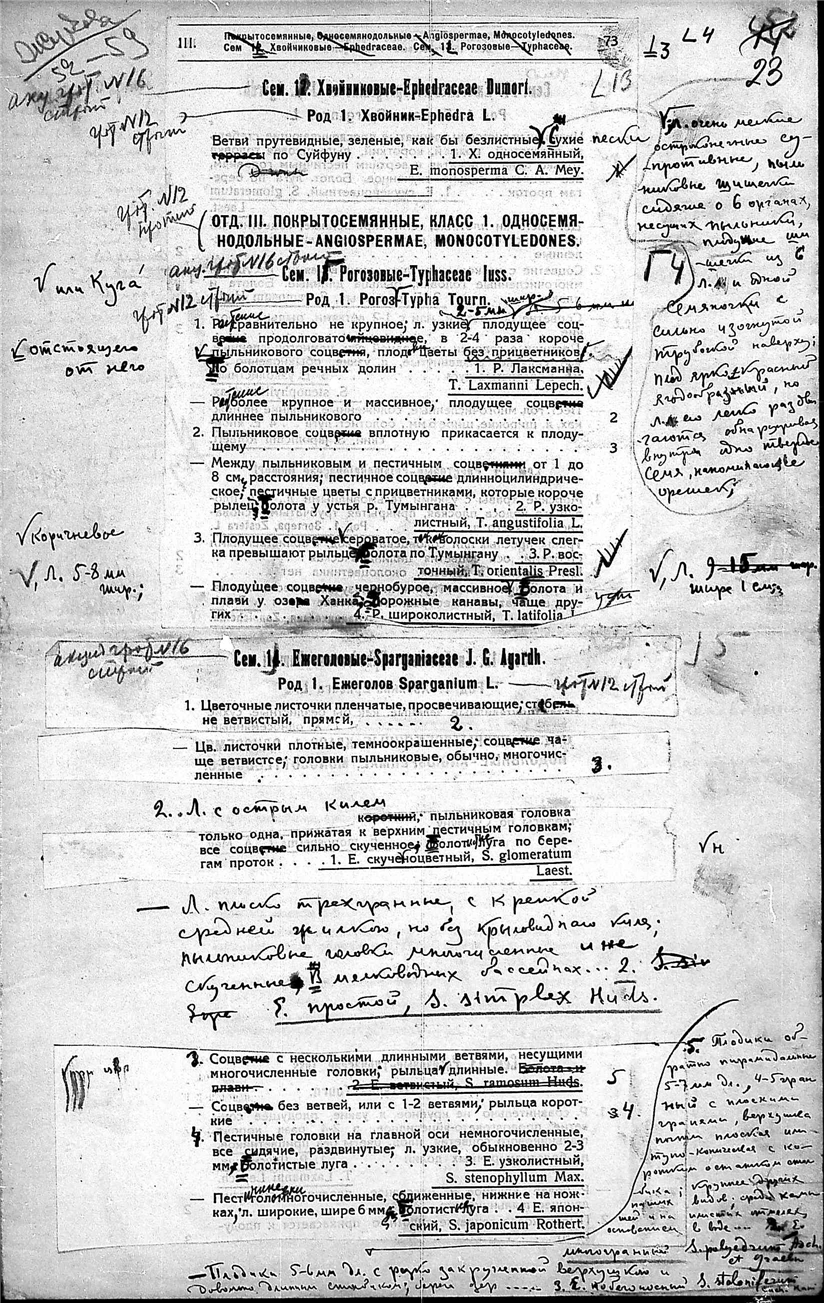 52–59
III. Покрытосемянные, Односемянодольные – Angiospermae, Monocotyledones.
Сем. 12. Хвойниковые–Ephedraceae. Сем. 13. Рогозовые–Typhaceae.
73
L3 L4
23
L13
Сем. 12. Хвойниковые-Ephedraceae Dumort.
Род 1. Хвойник-Ephedra L.
Ветви прутевидные, зеленые, как бы безлистные. Сухие пески
террасы по Суйфуну . . . . . 1. Х. односемянный,
E. monosperma C. A. Mey.
V л. очень мелкие
остроконечные су-
противные, пыль-
никовые шишечки
сидячие о 6 органах,
несущих пыльники,
плодущие ши-
шечки из 6
л. и одной
семяпочки с
сильно изогнутой
трубкой наверху;
плод ярко-красный
ягодообразный, но
л. его легко раздви-
гаются обнаруживая
внутри одно твердое
семя, напоминающее
орешек;
ОТД. III. ПОКРЫТОСЕМЯННЫЕ, КЛАСС 1. ОДНОСЕМЯ-
НОДОЛЬНЫЕ – ANGIOSPERMAE, MONOCOTYLEDONES.
Г4
Сем. 13. Рогозовые-Typhaceae Iuss.
V или Куга́
Род 1. Рогоз-Typha Tourn.
2-5 мм шир.
1. Растение сравнительно не крупное; л. узкие, плодущее соц-
ветие продолговатояйцевидное, в 2-4 раза короче
V отстоящего
от него
пыльникового соцветия, плодовые цветы без прицветников.
По болотцам речных долин . . . . 1. Р. Лаксманна,
T. Laxmanni Lepech.
— Растение более крупное и массивное, плодущее соцветие
длиннее пыльникового 2
2. Пыльниковое соцветие вплотную прикасается к плоду-
щему 3
— Между пыльниковым и пестичным соцветиями от 1 до
8 см. расстояния; пестичное соцветие длинноцилиндриче-
ское; пестичные цветы с прицветниками, которые короче
рылец. Болота у устья р. Тумынгана . . . 2. Р. узко-
листный, T. angustifolia L.
V Коричневое
3. Плодущее соцветие сероватое, волоски летучек слег-
ка превышают рыльце. Болота по Тумынгану . . 3. Р. вос-
точный, T. orientalis Presl.
V, Л. 5-8 мм
шир.;
V, Л. 9-15 мм шир.
шире 1 см;
— Плодущее соцветие чернобурое, массивное. Болота и
плави у озера Ханка, дорожные канавы, чаще дру-
гих . . . . . . 4. Р. широколистный, T. latifolia L.
15
Сем. 14. Ежеголовые-Sparganiaceae J. G. Agardh.
Род 1. Ежеголов Sparganium L.
1. Цветочные листочки пленчатые, просвечивающие; стебель
не ветвистый, прямой, . . . . . 2.
— Цв. листочки плотные, темноокрашенные; соцветие ча-
ще ветвистое; головки пыльниковые, обычно, многочис-
ленные . . . . . . . . 3.
2. Л. с острым килем
короткий, пыльниковая головка
только одна, прижатая к верхним пестичным головкам;
все соцветие сильно скученное. Болотистые луга по бере-
гам проток . . . . 1. Е. скученоцветный, S. glomeratum
Laest.
V н
— Л. плоско трехгранные, с крепкой
средней жилкою, но без крыловидного киля;
пыльниковые головки многочисленные и не
скученные. В мелководных бассейнах... 2.
Е. простой, S. simplex Huds.
3. Соцветие с несколькими длинными ветвями, несущими
многочисленные головки; рыльца длинные. Болота и 5
плави . . . . . . 2 Е. ветвистый, S. ramosum Huds.
— Соцветие без ветвей, или с 1-2 ветвями, рыльца корот-
кие 4.
4. Пестичные головки на главной оси немногочисленные,
все сидячие, раздвинутые; л. узкие, обыкновенно 2-3
мм. Болотистые луга . . . . . 3. Е. узколистный,
S. stenophyllum Max.
— Пестичные головки многочисленные, сближенные, нижние на нож-
ках, л. широкие, шире 6 мм. Болотистые луга . . 4 Е. япон-
ский, S. japonicum Rothert.
5. Плодики об-
ратно пирамидальные
5-7 мм дл., 4-5 гран-
ный с плоскими
гранями, верхушка
почти плоская или
тупо-коническая с ко-
ротким остатком стол-
бика; крупнее других
видов, среди
многогранный
S. polyedrum Asch.
et Graebn
— Плодики 5-6 мм дл. с резко закругленной верхушкой и
довольно длинным столбиком; берега озер ...... 3. Е. побегоносный S. stoloniferum